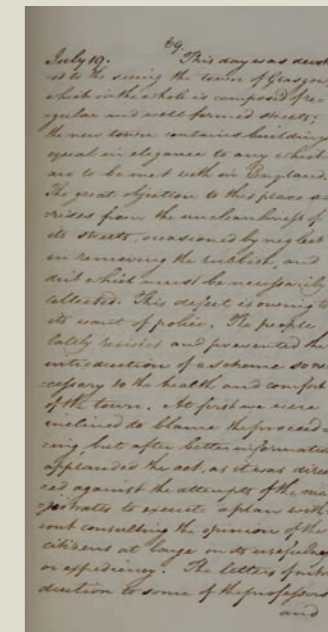 69.
July 19. This day was devot
=ed to the seeing the town of Glasgow,
which on the whole is composed of re
=gular and well formed streets;
the new town contains building
equal in elegance to any which
are to be met with in England.
The great objection to this place a-
=rises from the uncleanliness of
its streets, occasioned by neglect
in removing the rubbish, and
dirt which must be necessarily
collected. This defect is owing to
its want of police. The people
lately resisted and prevented the
introduction of a scheme so ne
=cessary to the health and comfort
of the town. At first we were
inclined to blame the proceed=
=ing, but after better information
applauded the act, as it was direc
=ed against the attempts of the ma
=gistrates to execute a plan with
out consulting the opinion of the
citizens at large on its usefulness
or expediency. The letters of intro
duction to some of the professors
and